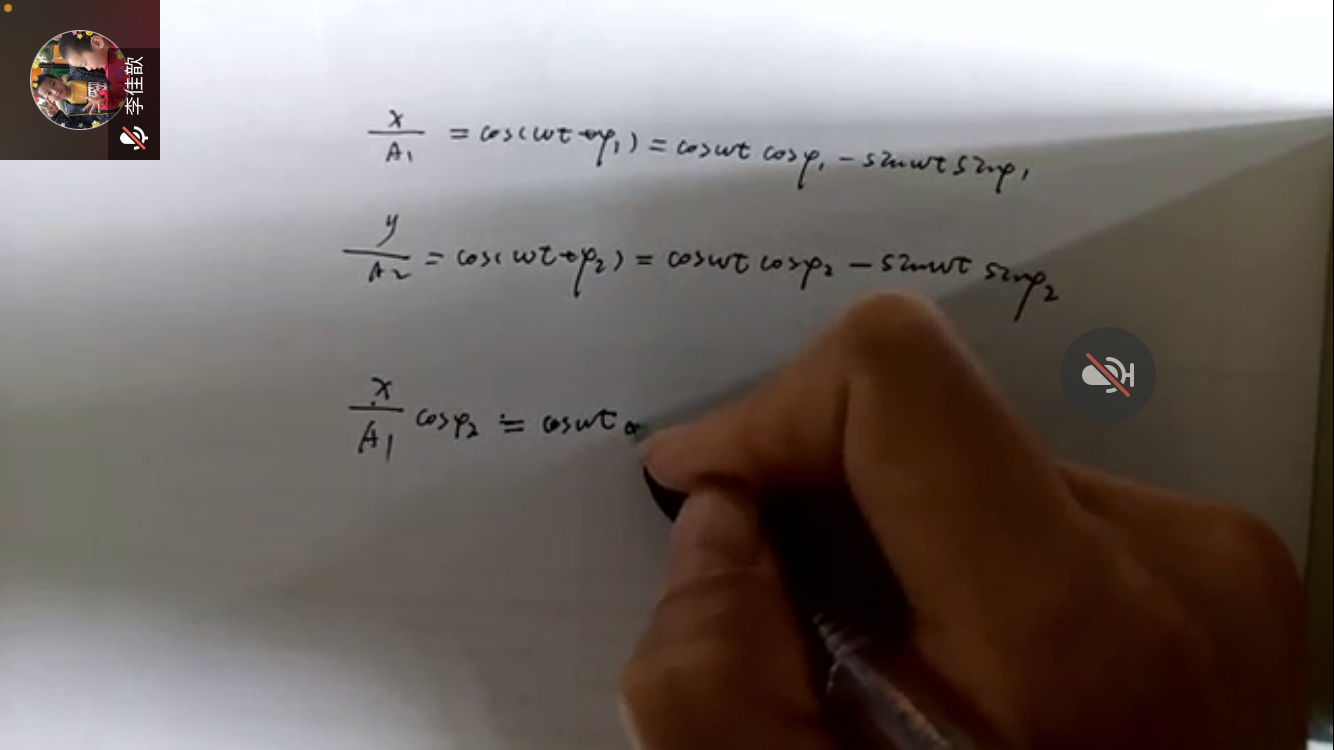 李佳歆
x/A₁ = cos(ωt+φ₁) = cosωt cosφ₁ - sinωt sinφ₁
y/A₂ = cos(ωt+φ₂) = cosωt cosφ₂ - sinωt sinφ₂
x/A₁ cosφ₂ = cosωt